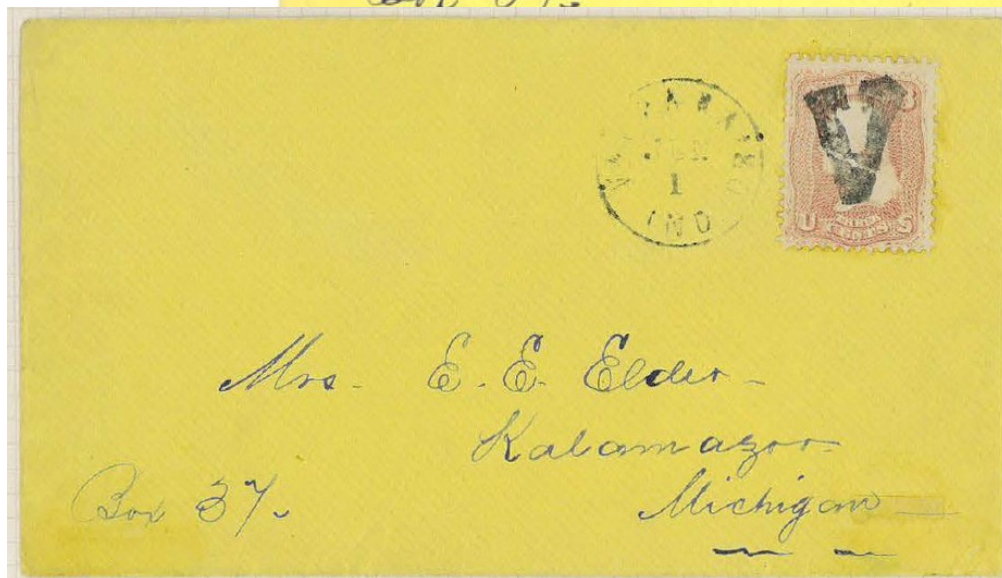 VALPARAISO
JUN
1
IND
3
V
U S
CENTS
Mrs. E. E. Elder
Kalamazoo
Michigan
Box 37.